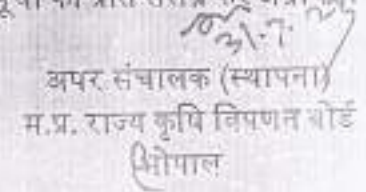 की प्रति
31.7.
अपर संचालक (स्थापना)
म.प्र. राज्य कृषि विपणन बोर्ड
भोपाल